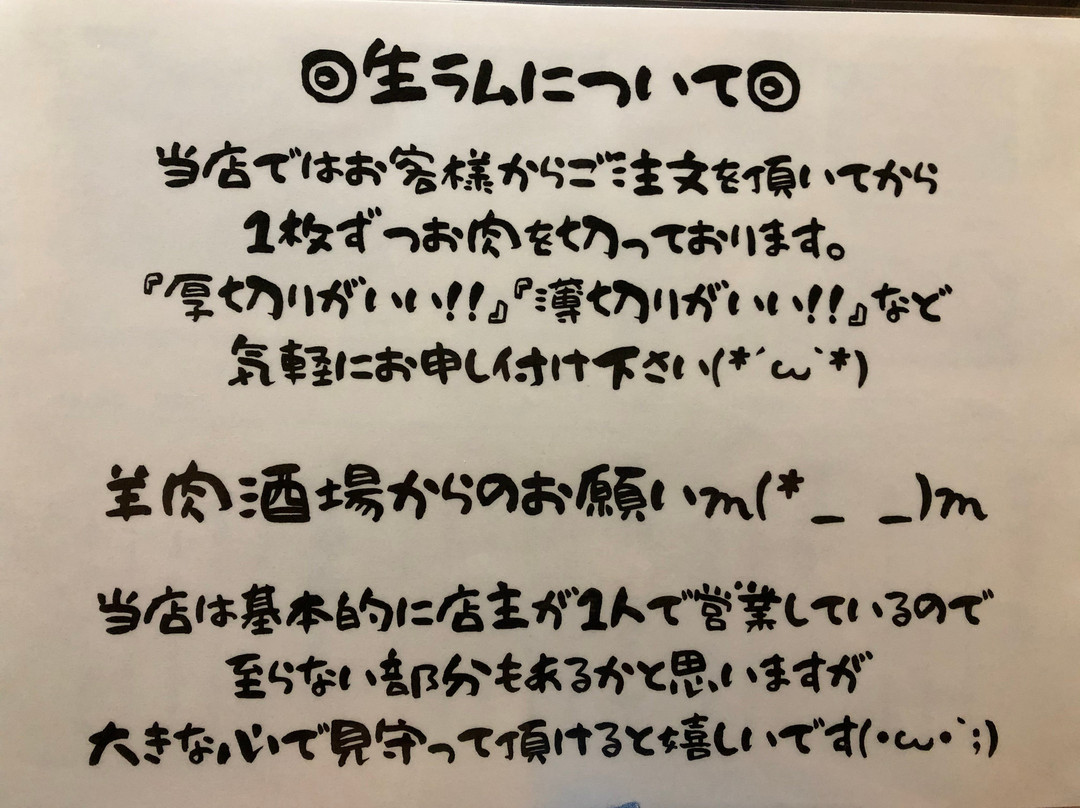 ◎生ラムについて◎
当店ではお客様からご注文を頂いてから
1枚ずつお肉を切っております。
『厚切りがいい!!』『薄切りがいい!!』など
気軽にお申し付け下さい(*´ω`*)
羊肉酒場からのお願いm(*_ _)m
当店は基本的に店主が1人で営業しているので
至らない部分もあるかと思いますが
大きな心で見守って頂けると嬉しいです(・ω・`;)